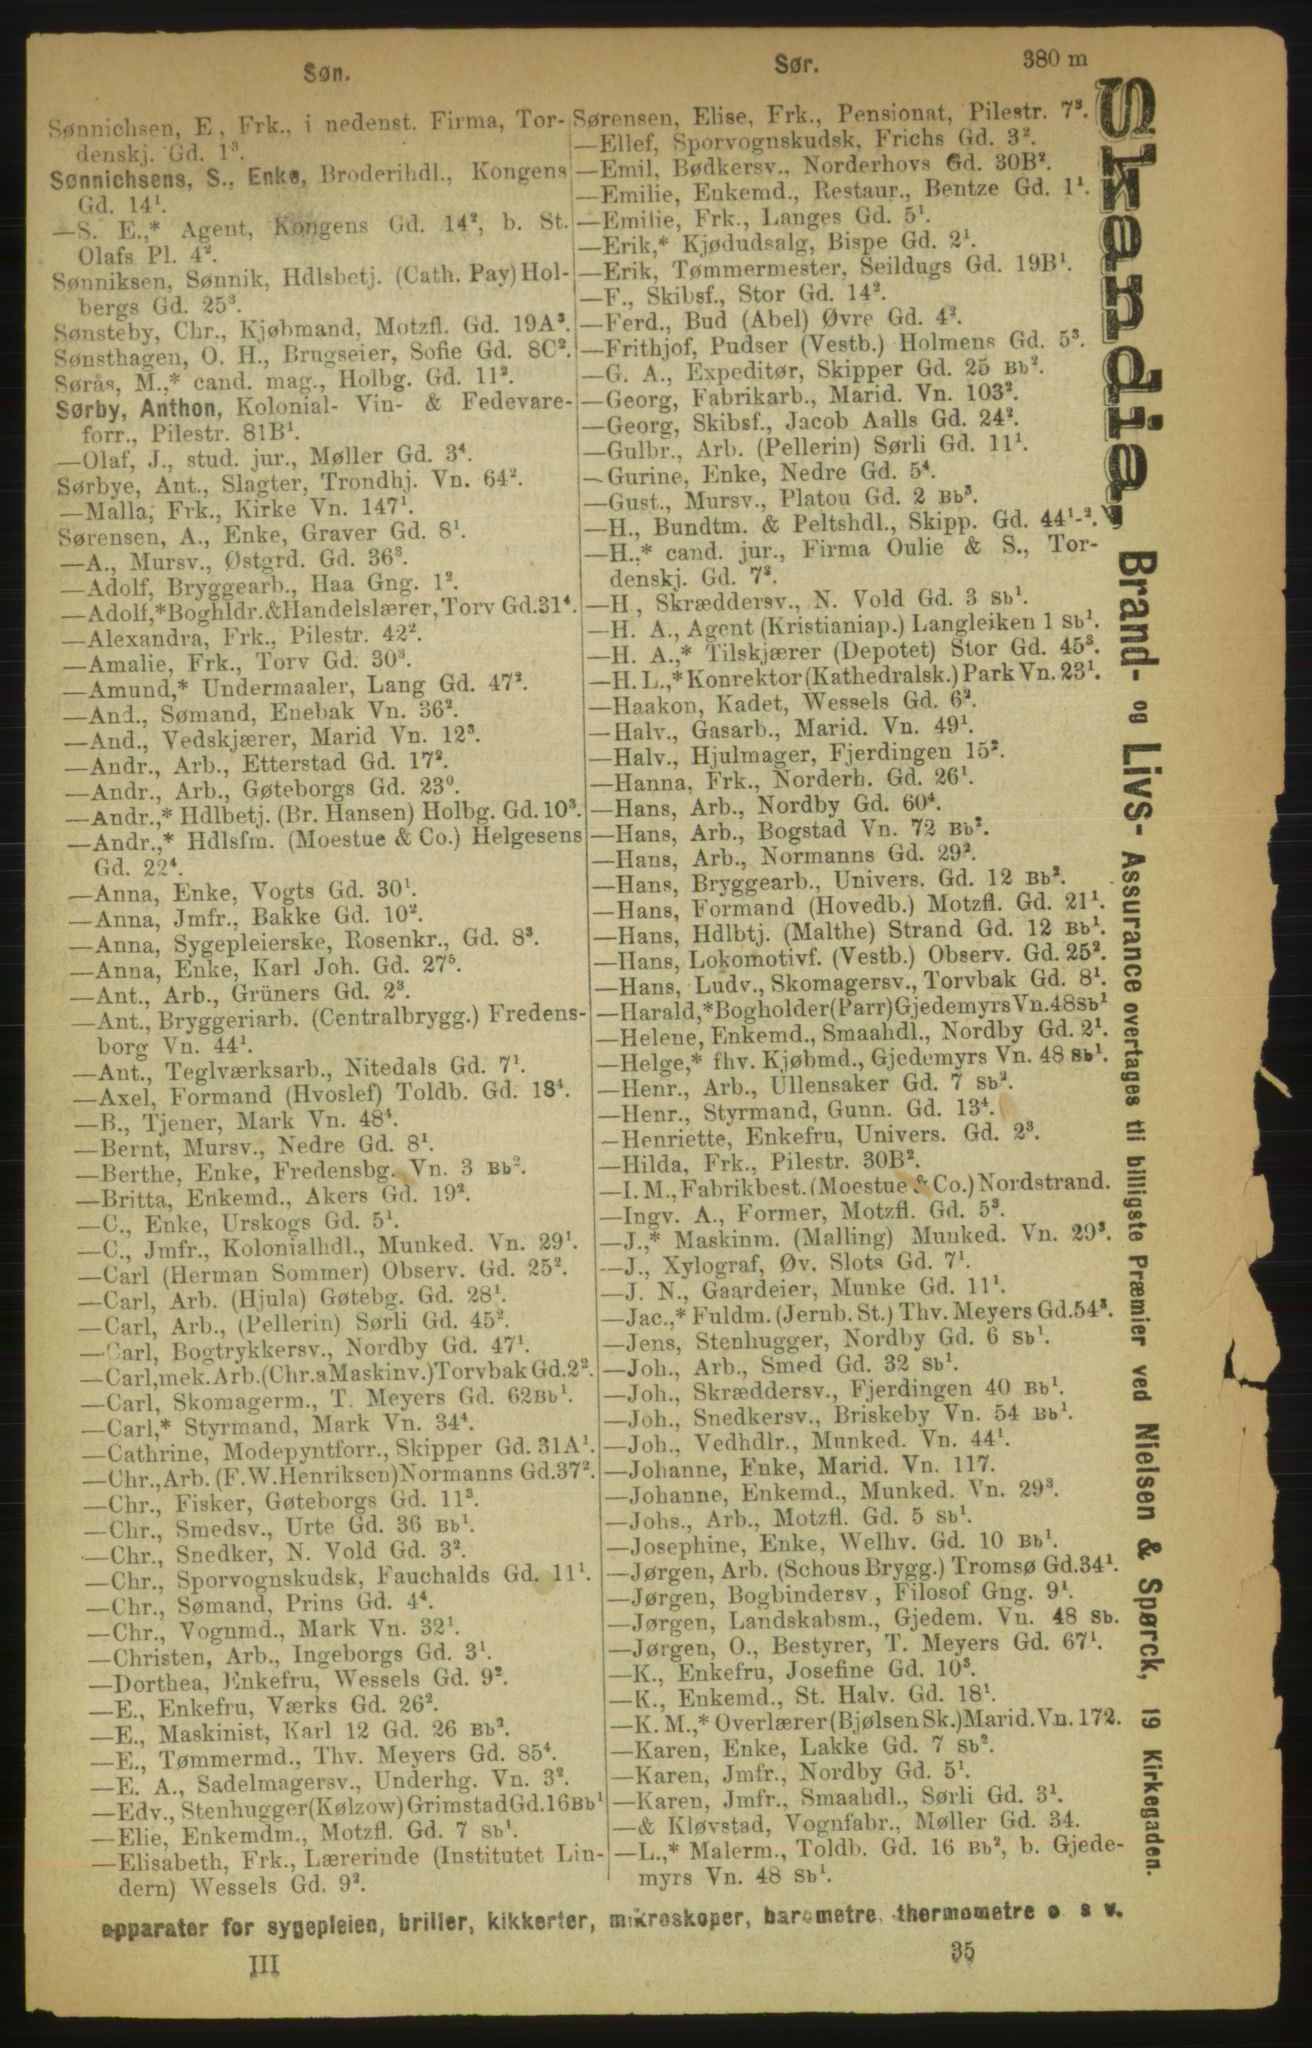 Søn.
Sør.
380 m
Sønnichsen, E., Frk., i nedenst. Firma, Tor-
denskj. Gd. 1³.
Sønnichsens, S., Enke, Broderihdl., Kongens
Gd. 14¹.
—S. E.,* Agent, Kongens Gd. 14², b. St.
Olafs Pl. 4².
Sønniksen, Sønnik, Hdlsbetj. (Cath. Pay) Hol-
bergs Gd. 25³.
Sønsteby, Chr., Kjøbmand, Motzfl. Gd. 19A³.
Sønsthagen, O. H., Brugseier, Sofie Gd. 8C².
Sørås, M.,* cand. mag., Holbg. Gd. 11².
Sørby, Anthon, Kolonial- Vin- & Fedevare-
forr., Pilestr. 81B¹.
—Olaf, J., stud. jur., Møller Gd. 3⁴.
Sørbye, Ant., Slagter, Trondhj. Vn. 64².
—Malla, Frk., Kirke Vn. 147¹.
Sørensen, A., Enke, Graver Gd. 8¹.
—A., Mursv., Østgrd. Gd. 36³.
—Adolf, Bryggearb., Haa Gng. 1².
—Adolf,* Boghldr. & Handelslærer, Torv Gd. 31⁴.
—Alexandra, Frk., Pilestr. 42².
—Amalie, Frk., Torv Gd. 30³.
—Amund,* Undermaaler, Lang Gd. 47².
—And., Sømand, Enebak Vn. 36².
—And., Vedskjærer, Marid Vn. 12³.
—Andr., Arb., Etterstad Gd. 17².
—Andr., Arb., Gøteborgs Gd. 23⁰.
—Andr.,* Hdlbetj. (Br. Hansen) Holbg. Gd. 10³.
—Andr.,* Hdlsfm. (Moestue & Co.) Helgesens
Gd. 22⁴.
—Anna, Enke, Vogts Gd. 30¹.
—Anna, Jmfr., Bakke Gd. 10².
—Anna, Sygepleierske, Rosenkr., Gd. 8³.
—Anna, Enke, Karl Joh. Gd. 27⁵.
—Ant., Arb., Grüners Gd. 2³.
—Ant., Bryggeriarb. (Centralbrygg.) Fredens-
borg Vn. 44¹.
—Ant., Teglværksarb., Nitedals Gd. 7¹.
—Axel, Formand (Hvoslef) Toldb. Gd. 18⁴.
—B., Tjener, Mark Vn. 48⁴.
—Bernt, Mursv., Nedre Gd. 8¹.
—Berthe, Enke, Fredensbg. Vn. 3 Bb².
—Britta, Enkemd., Akers Gd. 19².
—C., Enke, Urskogs Gd. 5¹.
—C., Jmfr., Kolonialhdl., Munked. Vn. 29¹.
—Carl (Herman Sommer) Observ. Gd. 25².
—Carl, Arb. (Hjula) Gøtebg. Gd. 28¹.
—Carl, Arb., (Pellerin) Sørli Gd. 45².
—Carl, Bogtrykkersv., Nordby Gd. 47¹.
—Carl, mek. Arb. (Chr.a Maskinv.) Torvbak Gd. 2².
—Carl, Skomagerm., T. Meyers Gd. 62Bb¹.
—Carl,* Styrmand, Mark Vn. 34⁴.
—Cathrine, Modepyntforr., Skipper Gd. 31A¹.
—Chr., Arb. (F. W. Henriksen) Normanns Gd. 37².
—Chr., Fisker, Gøteborgs Gd. 11³.
—Chr., Smedsv., Urte Gd. 36 Bb¹.
—Chr., Snedker, N. Vold Gd. 3².
—Chr., Sporvognskudsk, Fauchalds Gd. 11¹.
—Chr., Sømand, Prins Gd. 4⁴.
—Chr., Vognmd., Mark Vn. 32¹.
—Christen, Arb., Ingeborgs Gd. 3¹.
—Dorthea, Enkefru, Wessels Gd. 9².
—E., Enkefru, Værks Gd. 26².
—E., Maskinist, Karl 12 Gd. 26 Bb².
—E., Tømmermd., Thv. Meyers Gd. 85⁴.
—E. A., Sadelmagersv., Underhg. Vn. 3².
—Edv., Stenhugger (Kølzow) Grimstad Gd. 16Bb¹
—Elie, Enkemdm., Motzfl. Gd. 7 Sb¹.
—Elisabeth, Frk., Lærerinde (Institutet Lin-
dern) Wessels Gd. 9².
Sørensen, Elise, Frk., Pensionat, Pilestr. 7³.
—Ellef, Sporvognskudsk, Frichs Gd. 3².
—Emil, Bødkersv., Norderhovs Gd. 30B².
—Emilie, Enkemd., Restaur., Bentze Gd. 1¹.
—Emilie, Frk., Langes Gd. 5¹.
—Erik,* Kjødudsalg, Bispe Gd. 2¹.
—Erik, Tømmermester, Seildugs Gd. 19B¹.
—F., Skibsf., Stor Gd. 14².
—Ferd., Bud (Abel) Øvre Gd. 4².
—Frithjof, Pudser (Vestb.) Holmens Gd. 5³.
—G. A., Expeditør, Skipper Gd. 25 Bb².
—Georg, Fabrikarb., Marid. Vn. 103².
—Georg, Skibsf., Jacob Aalls Gd. 24².
—Gulbr., Arb. (Pellerin) Sørli Gd. 11¹.
—Gurine, Enke, Nedre Gd. 5⁴.
—Gust., Mursv., Platou Gd. 2 Bb³.
—H., Bundtm. & Peltshdl., Skipp. Gd. 44¹-².
—H.,* cand. jur., Firma Oulie & S., Tor-
denskj. Gd. 7³.
—H., Skræddersv., N. Vold Gd. 3 Sb¹.
—H. A., Agent (Kristianiap.) Langleiken 1 Sb¹.
—H. A.,* Tilskjærer (Depotet) Stor Gd. 45³.
—H. L.,* Konrektor (Kathedralsk.) Park Vn. 23¹.
—Haakon, Kadet, Wessels Gd. 6².
—Halv., Gasarb., Marid. Vn. 49¹.
—Halv., Hjulmager, Fjerdingen 15².
—Hanna, Frk., Norderh. Gd. 26¹.
—Hans, Arb., Nordby Gd. 60⁴.
—Hans, Arb., Bogstad Vn. 72 Bb².
—Hans, Arb., Normanns Gd. 29².
—Hans, Bryggearb., Univers. Gd. 12 Bb².
—Hans, Formand (Hovedb.) Motzfl. Gd. 21¹.
—Hans, Hdlbtj. (Malthe) Strand Gd. 12 Bb¹.
—Hans, Lokomotivf. (Vestb.) Observ. Gd. 25².
—Hans, Ludv., Skomagersv., Torvbak Gd. 8¹.
—Harald,* Bogholder (Parr) Gjedemyrs Vn. 48Sb¹
—Helene, Enkemd., Smaahdl., Nordby Gd. 2¹.
—Helge,* fhv. Kjøbmd., Gjedemyrs Vn. 48 Sb¹.
—Henr., Arb., Ullensaker Gd. 7 Sb².
—Henr., Styrmand, Gunn. Gd. 13⁴.
—Henriette, Enkefru, Univers. Gd. 2³.
—Hilda, Frk., Pilestr. 30B².
—I. M., Fabrikbest. (Moestue & Co.) Nordstrand.
—Ingv. A., Former, Motzfl. Gd. 5³.
—J.,* Maskinm. (Malling) Munked. Vn. 29³.
—J., Xylograf, Øv. Slots Gd. 7¹.
—J. N., Gaardeier, Munke Gd. 11¹.
—Jac.,* Fuldm. (Jernb. St.) Thv. Meyers Gd. 54³.
—Jens, Stenhugger, Nordby Gd. 6 Sb¹.
—Joh., Arb., Smed Gd. 32 Sb¹.
—Joh., Skræddersv., Fjerdingen 40 Bb¹.
—Joh., Snedkersv., Briskeby Vn. 54 Bb¹.
—Joh., Vedhdlr., Munked. Vn. 44¹.
—Johanne, Enke, Marid. Vn. 117.
—Johanne, Enkemd., Munked. Vn. 29³.
—Johs., Arb., Motzfl. Gd. 5 Sb¹.
—Josephine, Enke, Welhv. Gd. 10 Bb¹.
—Jørgen, Arb. (Schous Brygg.) Tromsø Gd. 34¹.
—Jørgen, Bogbindersv., Filosof Gng. 9¹.
—Jørgen, Landskabsm., Gjedem. Vn. 48 Sb.
—Jørgen, O., Bestyrer, T. Meyers Gd. 67¹.
—K., Enkefru, Josefine Gd. 10³.
—K., Enkemd., St. Halv. Gd. 18¹.
—K. M.,* Overlærer (Bjølsen Sk.) Marid. Vn. 172.
—Karen, Enke, Lakke Gd. 7 Sb².
—Karen, Jmfr., Nordby Gd. 5¹.
—Karen, Jmfr., Smaahdl., Sørli Gd. 3¹.
—& Kløvstad, Vognfabr., Møller Gd. 34.
—L.,* Malerm., Toldb. Gd. 16 Bb², b. Gjede-
myrs Vn. 48 Sb¹.
Skandia, Brand- og Livs- Assurance overtages til billigste Præmier ved Nielsen & Spørck, 19 Kirkegaden.
apparater for sygepleien, briller, kikkerter, mikroskoper, barometre, thermometre o s v.
III
35